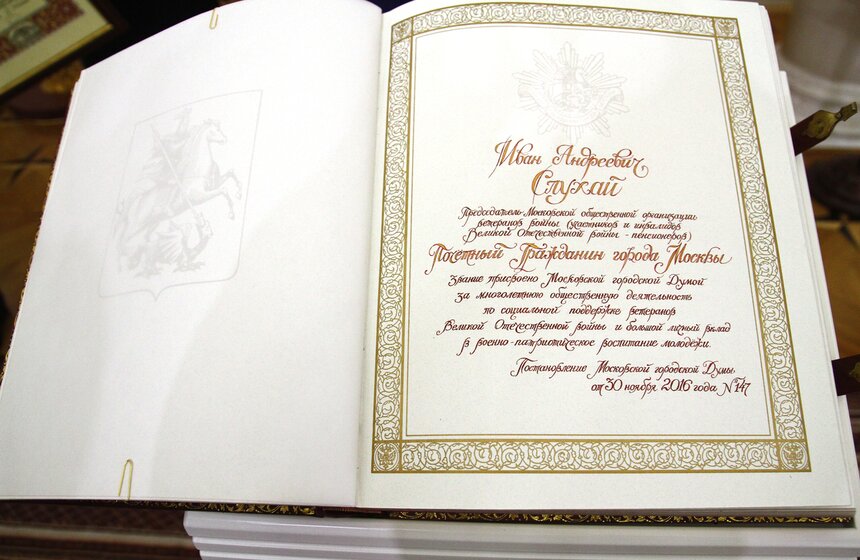 Иван Андреевич
Слухай
Председатель Московской общественной организации
ветеранов войны (участников и инвалидов
Великой Отечественной войны - пенсионеров)
Почетный Гражданин города Москвы
Звание присвоено Московской городской Думой
за многолетнюю общественную деятельность
по социальной поддержке ветеранов
Великой Отечественной войны и большой личный вклад
в военно-патриотическое воспитание молодежи.
Постановление Московской городской Думы
от 30 ноября 2016 года №147